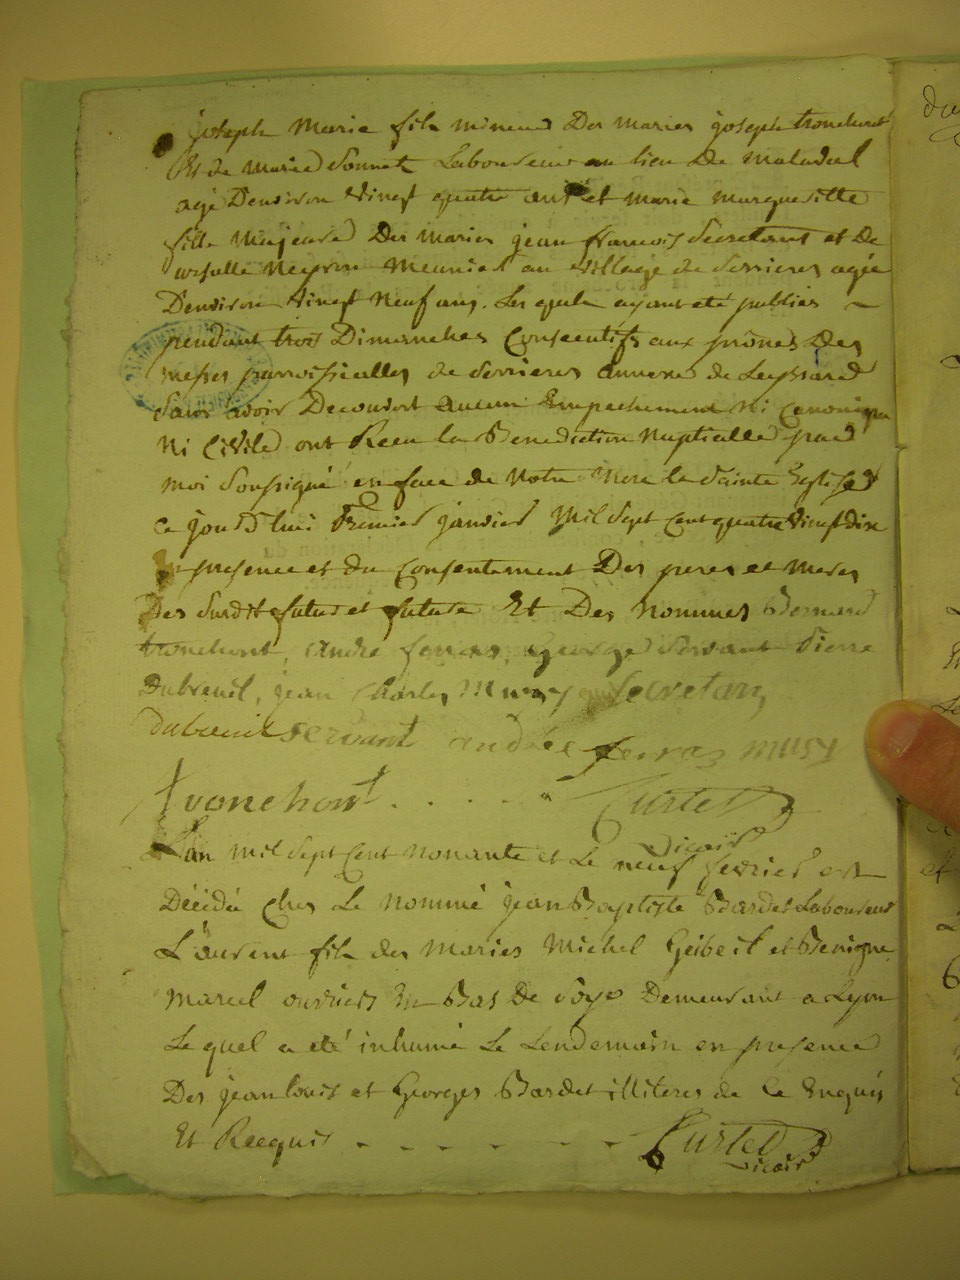 joseph Marie fils mineur Des maries joseph tronchont
Et de Marie Sonnet Laboureur au lieu De
agé Denviron vingt quatre ans et marie marguerille
fille Majeure Des maries jean francois Secretant et De
ursulle Neyron Meunier au village de Serrieres agée
Denviron vingt Neuf ans. Les quels ayant eté publies
pendant trois Dimanches Consecutifs aux prônes Des
messes parroissialles de Serrieres annexe de Leyssard
sans avoir Decouvert aucun Empechement Ni Canonique
Ni Civile ont Recu la Benediction Nuptialle par
moi soussigné en face de Notre Mere la Sainte Eglise
ce jourd'hui Premier janvier Mil Sept Cent quatre vingt dix
En presence et du Consentement Des peres et meres
Des Surdit futur et future Et Des Nommes Bernard
tronchont, andre feras, George Servant Pierre
Dubreuil, jean Charles Musy Secretan
dubreuil servant andrée ferraz musy
tronchont . . . . . Curtet
vicair
L'an Mil Sept Cent Nonante et Le neuf fevrier est
Décédé Ches Le Nommé jean Baptiste Bardet Laboureur
Laurent fils des Maries Michel Geibeil et Benigne
Marcel ouvriers En Bas De Soye Demeurant a Lyon
Le quel a eté inhumé Le Lendemain en presence
Des jean louis et Georges Bardet illiteres de ce Enquis
Et Recquis - - - - - - Curtet
vicair